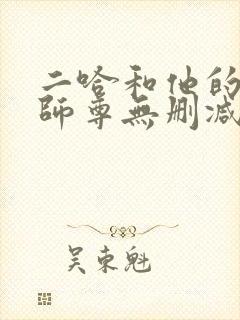 二哈和他的
師尊無刪减
吴東魁